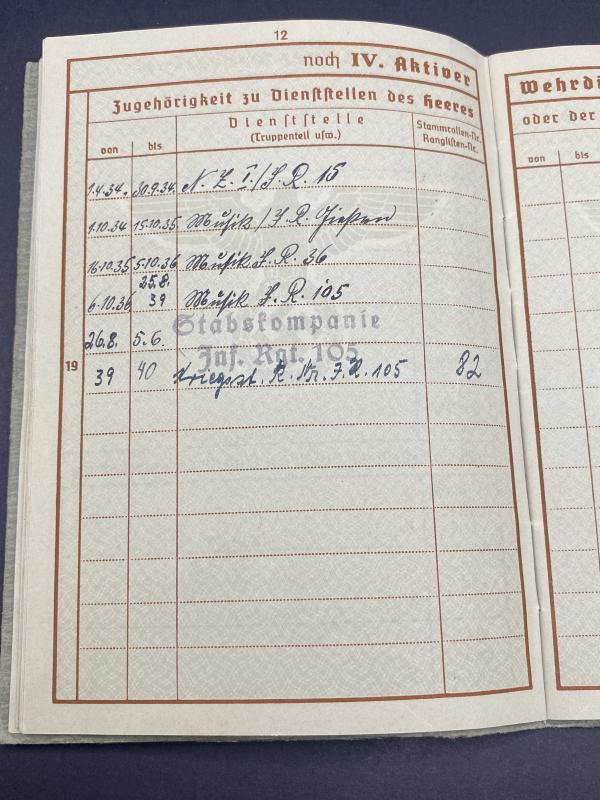 12
noch IV. Aktiver
Zugehörigkeit zu Dienststellen des Heeres
von bis Dienststelle (Truppenteil usw.) Stammrollen-Nr. Ranglisten-Nr.
1.4.34. 30.9.34. N. Z. I./J. R. 15
1.10.34 15.10.35. Musik/J. R. Gießen
16.10.35 5.10.36 Musik J. R. 36
6.10.36 25.8.39 Musik J. R. 105
Stabskompanie
Inf. Rgt. 105
26.8.39 5.6.40 Kriegsst. R. Nr. J.R. 105 82
19
Wehrdi
oder der
von bis